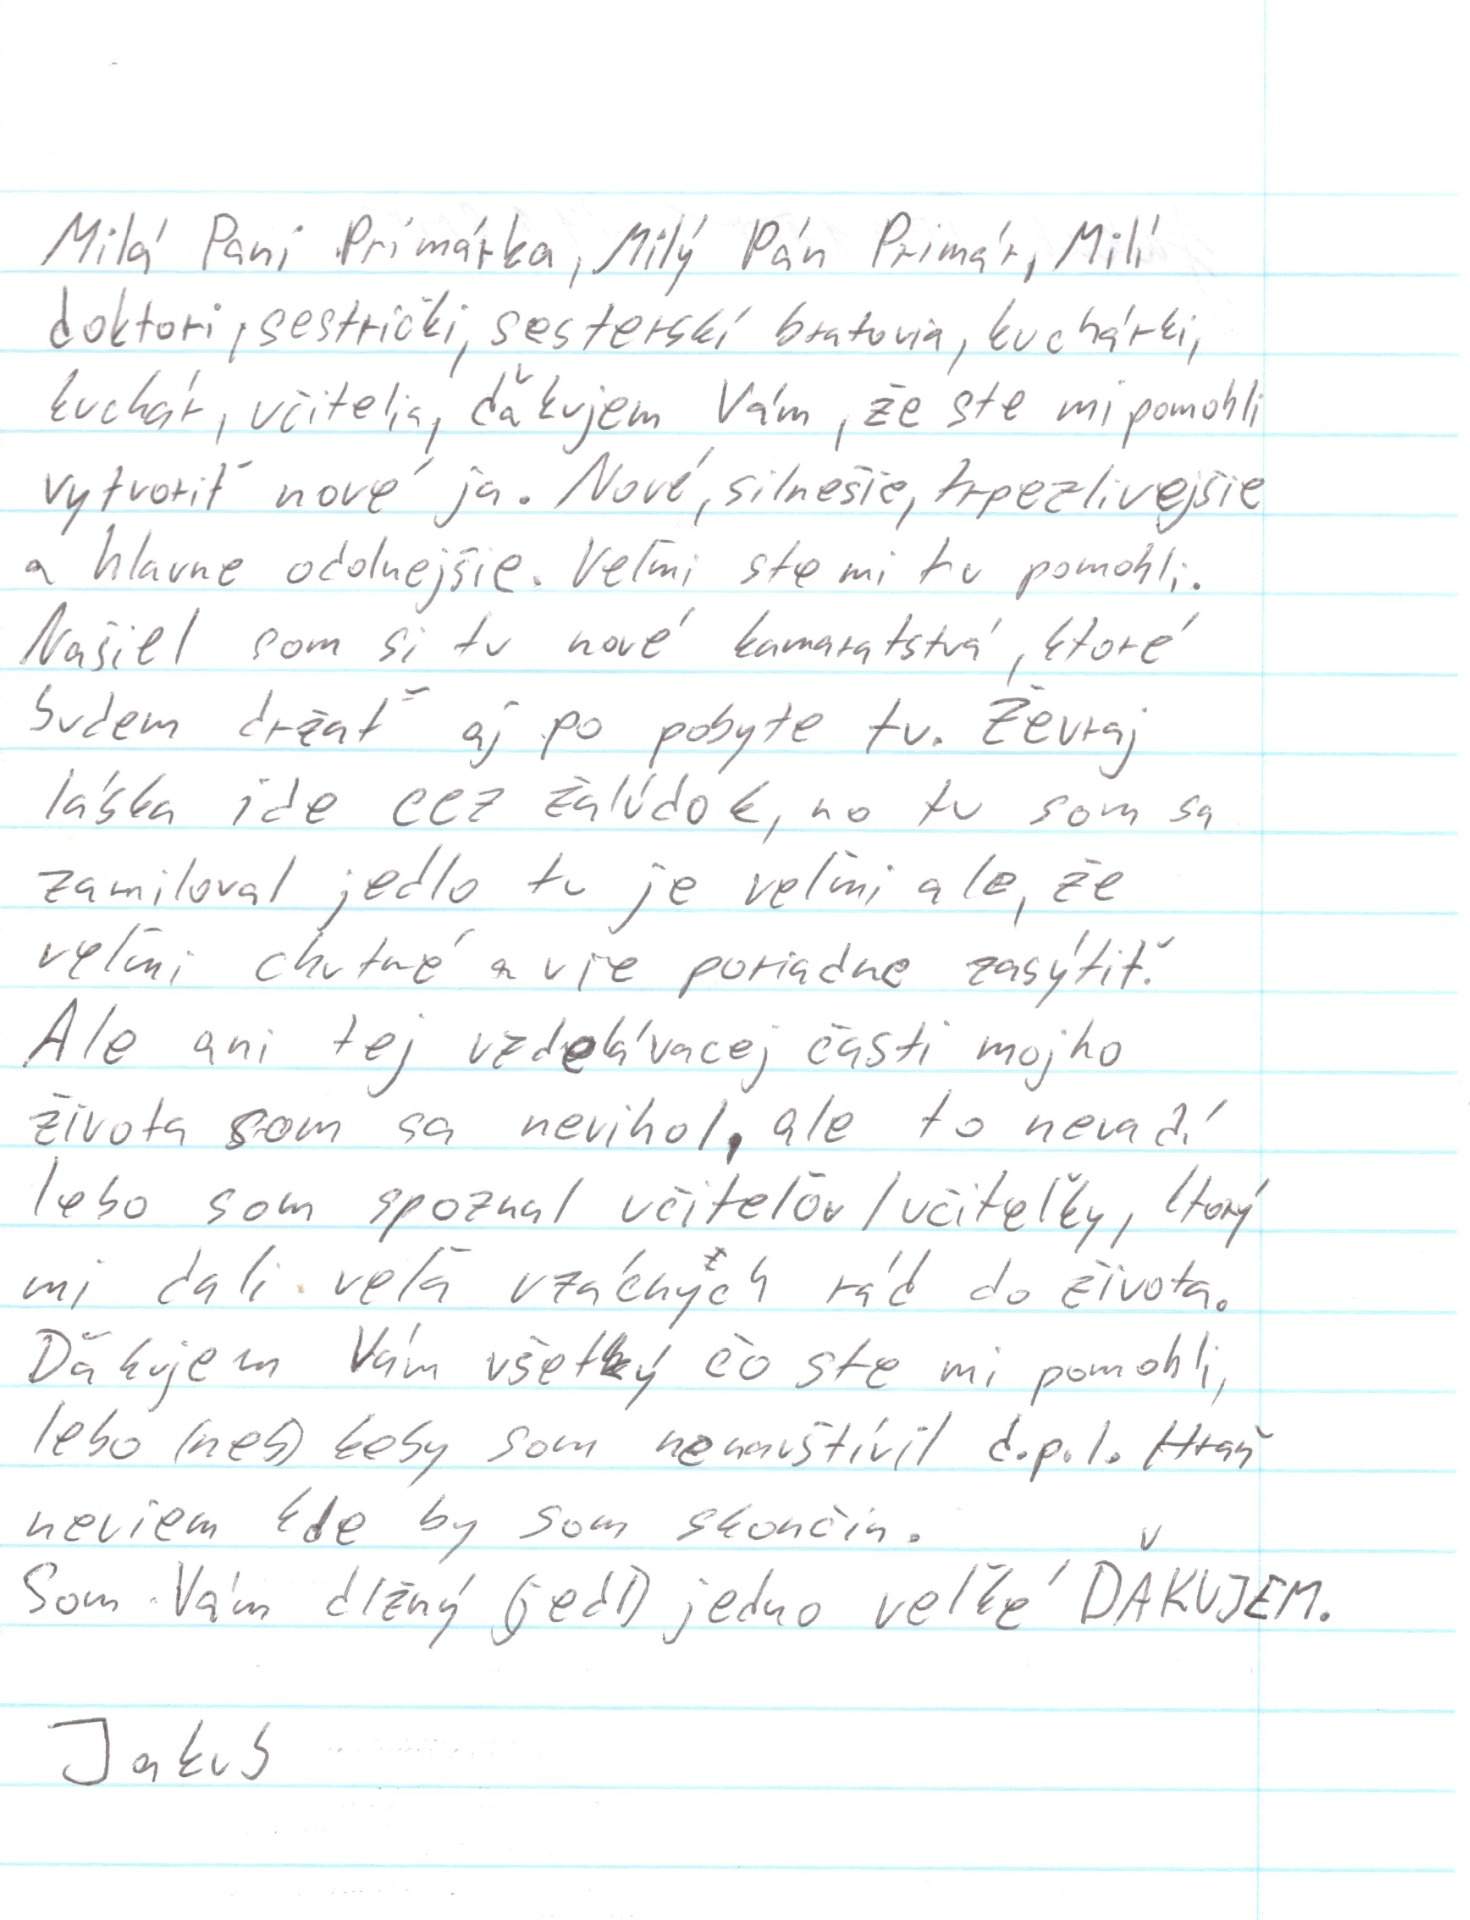 Milá Pani Primárka, Milý Pán Primár, Milí
doktori, sestrički, sesterskí bratovia, kuchárki,
kuchár, učitelia, ďǎkujem Vám, že ste mi pomohli
vytvoriť nové ja. Nové, silnešie, trpezlivejšie
a hlavne odolnejšie. Veľmi ste mi tu pomohli.
Našiel som si tu nové kamaratstvá, ktoré
budem držať aj po pobyte tu. Ževraj
láska ide cez žalúdok, no tu som sa
zamiloval jedlo tu je veľmi ale, že
veľmi chutné a vie poriadne zasýtiť.
Ale ani tej vzdelávacej časti mojho
života som sa nevihol, ale to nevadí
lebo som spoznal učiteľov/učiteľky, ktorý
mi dali veľa vzácných rád do života.
Ďǎkujem Vám všetký čo ste mi pomohli,
lebo (neb) keby som nenavštívil d.p.l. Hraň
neviem kde by som skončin.
Som Vám dlžný (jedl) jedno veľké ĎǍKUJEM.
Jakub